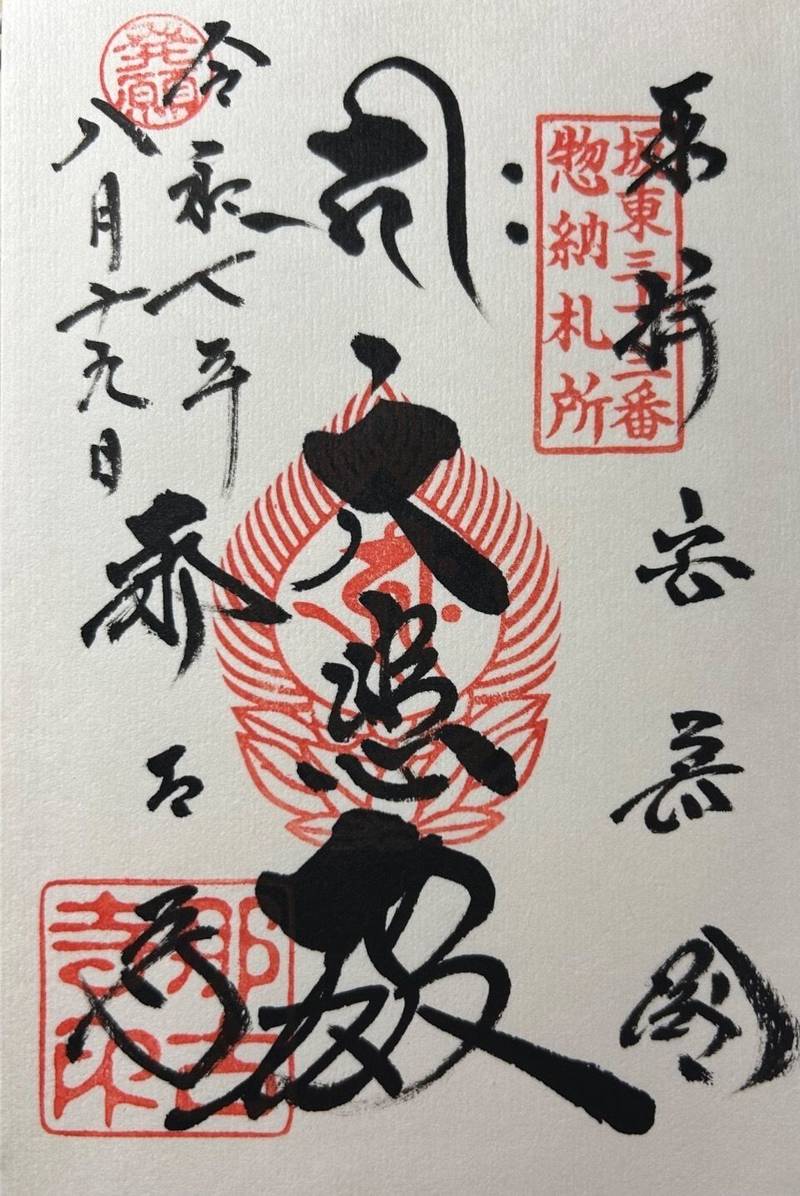 奉拝
坂東三十三番
惣納札所
安房國
大悲殿
令和七年
八月十九日
発願
那古寺
那古
寺印